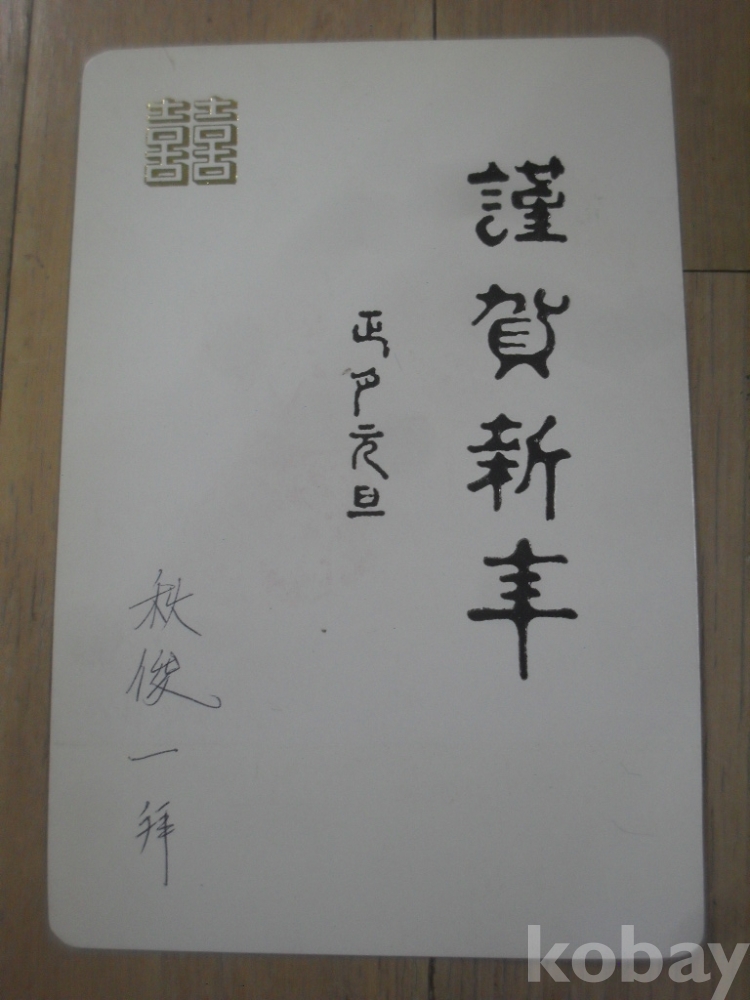 謹賀新年
正月元旦
秋俊一拜
囍
kobay